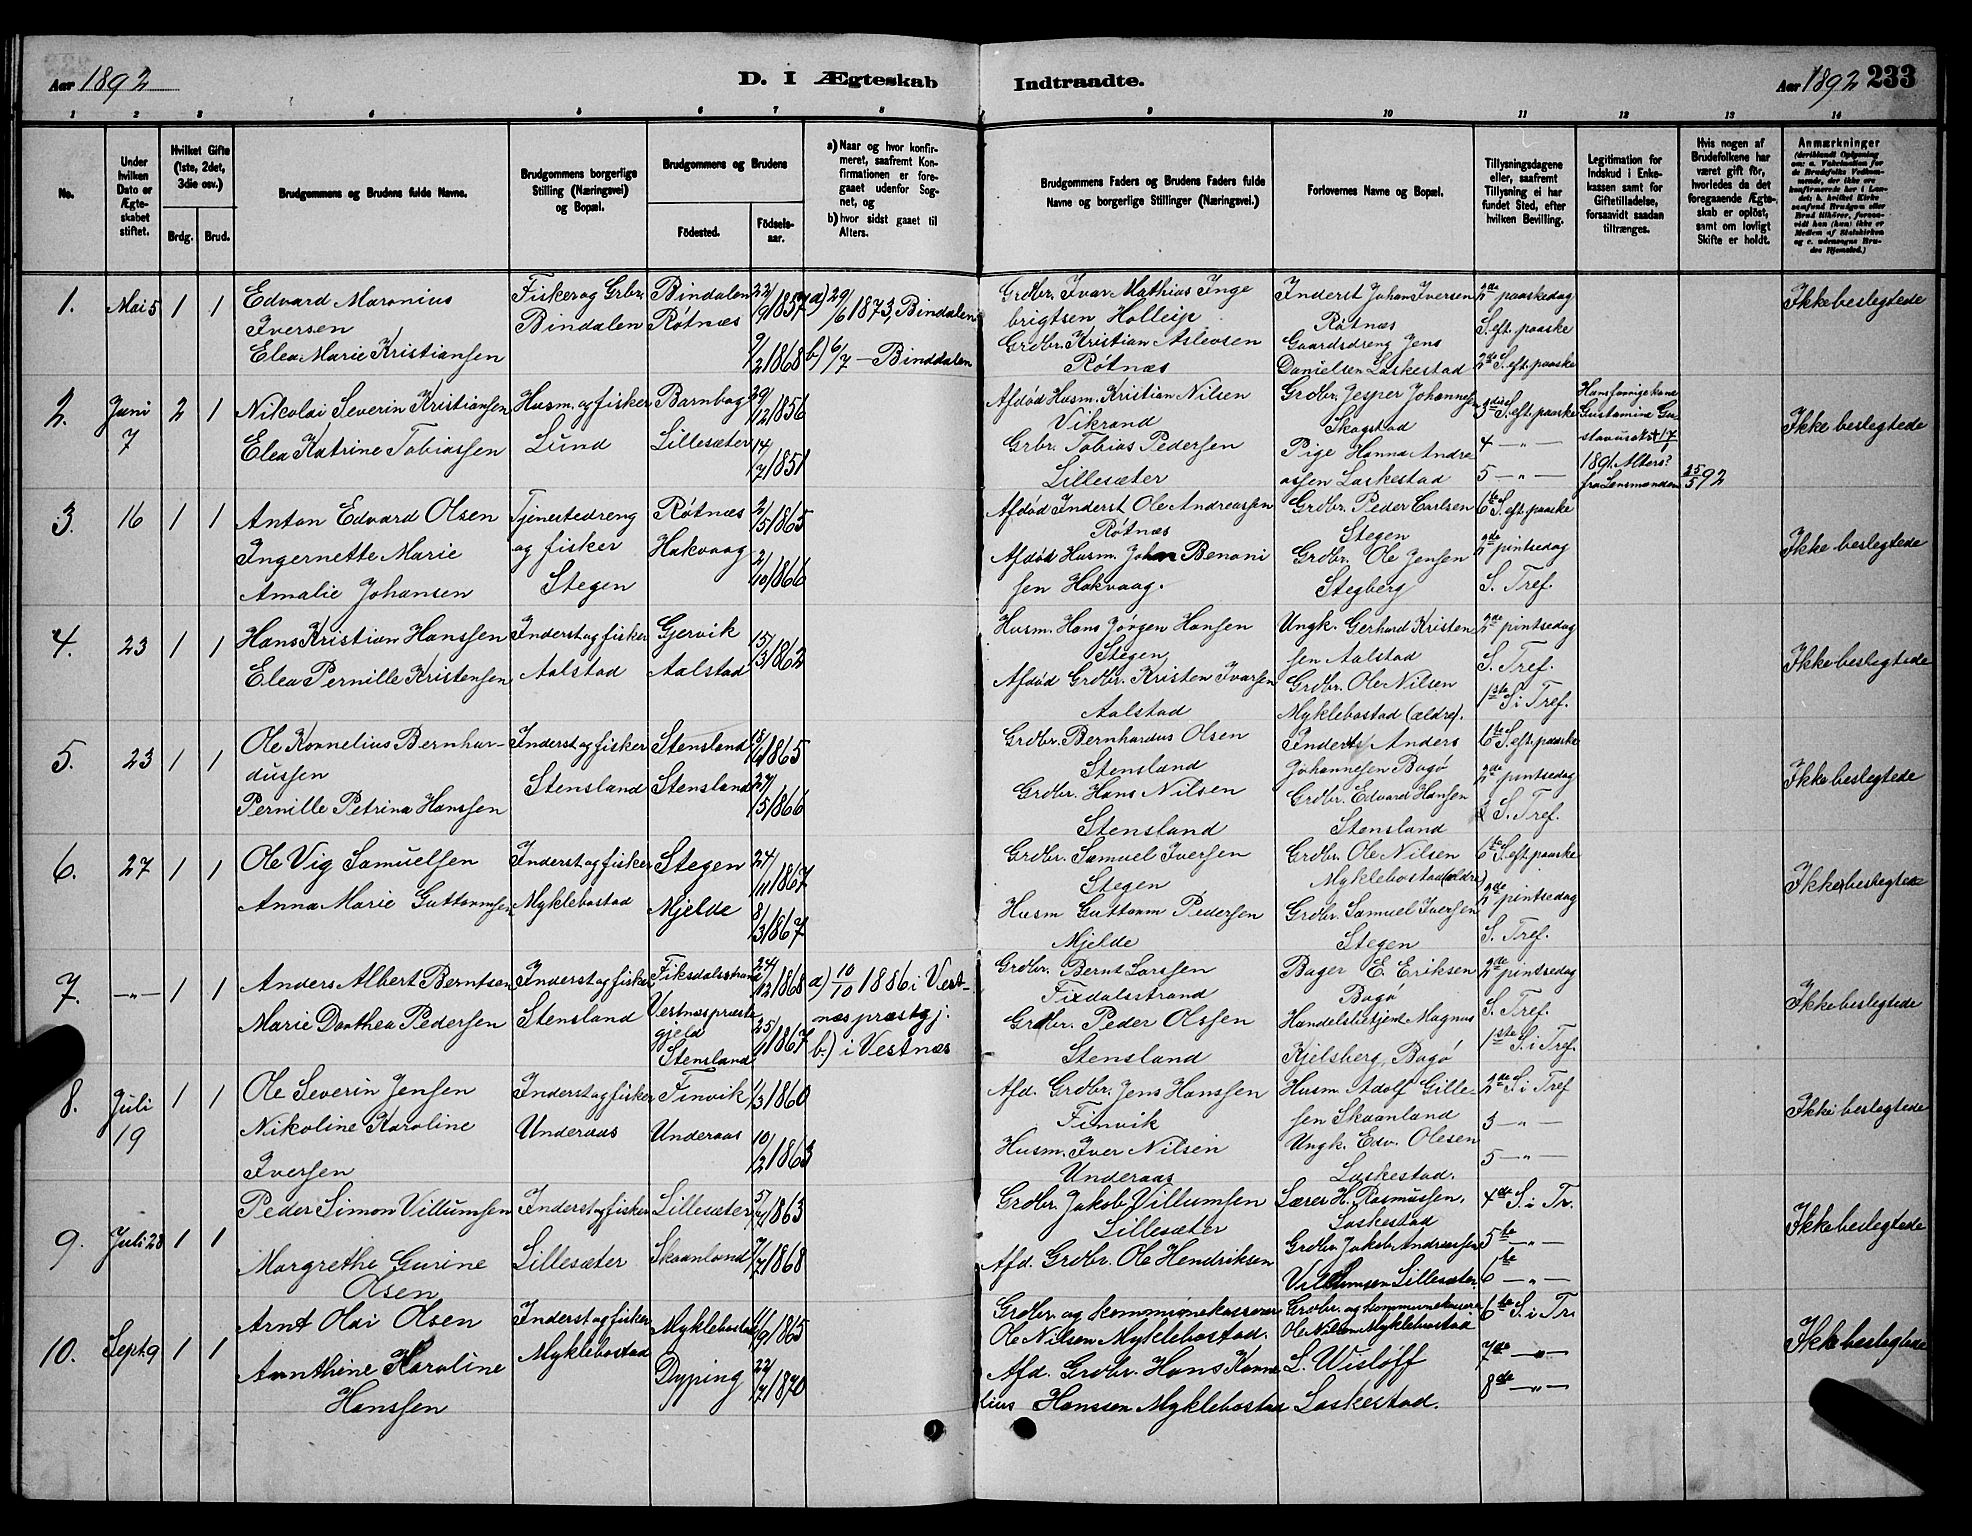 Aar 1892
D. I Ægteskab
Indtraadte.
Aar 1892 233
1 2 3 4 5 6 7 8 9 10 11 12 13 14
No.
Under hvilken Dato er Ægteskabet stiftet.
Hvilket Gifte (1ste, 2det, 3die osv.)
Brdg. Brud.
Brudgommens og Brudens fulde Navne.
Brudgommens borgerlige Stilling (Næringsvei) og Bopæl.
Brudgommens og Brudens
Födested. Födselsaar.
a) Naar og hvor konfirmeret, saafremt Konfirmationen er foregaaet udenfor Sognet, og
b) hvor sidst gaaet til Alters.
Brudgommens Faders og Brudens Faders fulde Navne og borgerlige Stillinger (Næringsvei.)
Forlovernes Navne og Bopæl.
Tillysningsdagene eller, saafremt Tillysning ei har fundet Sted, efter hvilken Bevilling.
Legitimation for Indskud i Enkekassen samt for Giftetilladelse, forsaavidt saadan tiltrænges.
Hvis nogen af Brudefolkene har været gift för, hvorledes da det foregaaende Ægteskab er oplöst, samt om lovligt Skifte er holdt.
Anmærkninger
1. Mai 5 1 1
Edvard Maronius
Iversen
Elea Marie Kristiansen
Fisker og Grbr.
Bindalen
Bindalen
Røtnæs
22/9 1857
9/2 1868
a) 29/6 1873, Bindalen
b) 6/7 - Binddalen
Grdbr. Ivar Mathias Inge
brigtsen Holleip
Grdbr. Kristian Aslevsen
Røtnæs
Inderst Johan Iversen
Røtnæs
Gaardsdreng Jens
Danielsen Laskestad
2de paaskedag
S. eft. paaske
2de S. eft. paaske
Ikke beslegtede
2. Juni 7 2 1
Nikolai Severin Kristiansen
Elea Katrine Tobiassen
Husm. og fisker
Lund
Barnbog
Lillesæter
29/12 1856
14/7 1851
Afdød Husm. Kristian Nilsen
Vikrand
Grbr. Tobias Pedersen
Lillesæter
Grdbr. Jesper Johannesen
Skogstad
Pige Hanna Andre
assen Laskestad
3die S. eft. paaske
4 - " -
5 - " -
Hans forrige kone
Gustamina Gu
stavusat + 17/1
1891. Attest
fra Lensmanden 25/5 92
Ikke beslegtede
3. 16 1 1
Anton Edvard Olsen
Ingernette Marie
Amalie Johansen
Tjenestedreng
og fisker
Stegen
Røtnæs
Hakvaag
2/5 1865
2/10 1866
Afdød Inderst Ole Andreassen
Røtnæs
Afdød Husm. Johan Benoni
sen Hakvaag.
Grdbr. Peder Carlsen
Stegen
Grdbr. Ole Jensen
Stegberg
6te S. eft. paaske
2de pintsedag
S. Tref.
Ikke beslegtede
4. 23 1 1
Hans Kristian Hanssen
Elea Pernille Kristensen
Inderst og fisker
Aalstad
Gjervik
Aalstad
15/3 1862
Husm. Hans Jørgen Hansen
Stegen
Afdød Grdbr. Kristen Ivarsen
Aalstad
Ungk. Gerhard Kristen
sen Aalstad
Grdbr. Ole Nilsen
Myklebostad (ældre).
2de pintsedag
S. Tref.
1ste S. i Tref.
Ikke beslegtede
5. 23 1 1
Ole Kornelius Bernhar-
dussen
Pernille Petrina Hanssen
Inderst og fisker
Stensland
Stensland
Stensland
18/6 1865
24/5 1866
Grdbr. Bernhardus Olsen
Stensland
Grdbr. Hans Nilsen
Stensland
Inderst Anders
Johannesen Bogø
Grdbr. Edvard Hansen
Stensland
6te S. eft. paaske
2de pintsedag
S. Tref.
Ikke beslegtede
6. 27 1 1
Ole Vig Samuelsen
Anna Marie Guttormsen
Inderst og fisker
Myklebostad
Stegen
Mjelde
24/11 1867
8/3 1867
Grdbr. Samuel Iversen
Stegen
Husm Guttorm Pedersen
Mjelde
Grdbr. Ole Nilsen
Myklebostad (ældre)
Grdbr. Samuel Iversen
Stegen
6te S. eft. paaske
2de pintsedag
S. Tref.
Ikke beslegtede
7. - " - 1 1
Anders Albert Berntsen
Marie Dorthea Pedersen
Inderst og fisker
Stensland
Fiksdalsstrand
Vestnespræste
gjeld
Stensland
24/12 1868
25/1 1867
a) 10/10 1886 i Vest-
næs præstgj:
b.) i Vestnæs
Grdbr. Bernt Larssen
Fixdalsstrand
Grdbr. Peder Olssen
Stensland
Bager E. Eriksen
Bogø
Handelsbetjent Magnus
Kjelsberg, Bogø
2de pintsedag
S. Tref.
1ste S. i Tref.
Ikke beslegtede
8. Juli 19 1 1
Ole Severin Jensen
Nikoline Karoline
Iversen
Inderst og fisker
Underaas
Finvik
Underaas
1/3 1860
10/2 1863
Afd. Grdbr. Jens Hanssen
Finvik
Husm. Iver Nilsen
Underaas
Husm. Adolf Gille-
sen Skaanland
Ungk. Edv. Olesen
Laskestad.
2de S. i Tref
3 - " -
5 - " -
Ikke beslegtede
9. Juli 28 1 1
Peder Simon Villumsen
Margrethe Gurine
Olsen
Inderst og fisker
Lillesæter
Lillesæter
Skaanland
5/7 1863
7/7 1868
Grdbr. Jakob Villumsen
Lillesæter
Afd. Grdbr. Ole Hendriksen
Lærer H. Rasmussen,
Laskestad
Grdbr. Jakob Andreassen
Villumsen Lillesæter
4de S. i Tr.
5te - " -
6te - " -
Ikke beslegtede
10. Sept. 9 1 1
Arnt Odi Olsen
Arnthine Karoline
Hanssen
Inderst og fisker
Myklebostad
Myklebostad
Dyping
16/9 1865
22/7 1870
Grdbr og kommunekasserer
Ole Nilsen Myklebostad.
Afd. Grdbr. Hans Korne
lius Hanssen Myklebostad
Grdbr. og kommunekasserer
Ole Nilsen Myklebostad
L. Wisløff
Laskestad.
6te S. i Tr.
7de - " -
8de - " -
Ikke beslegtede